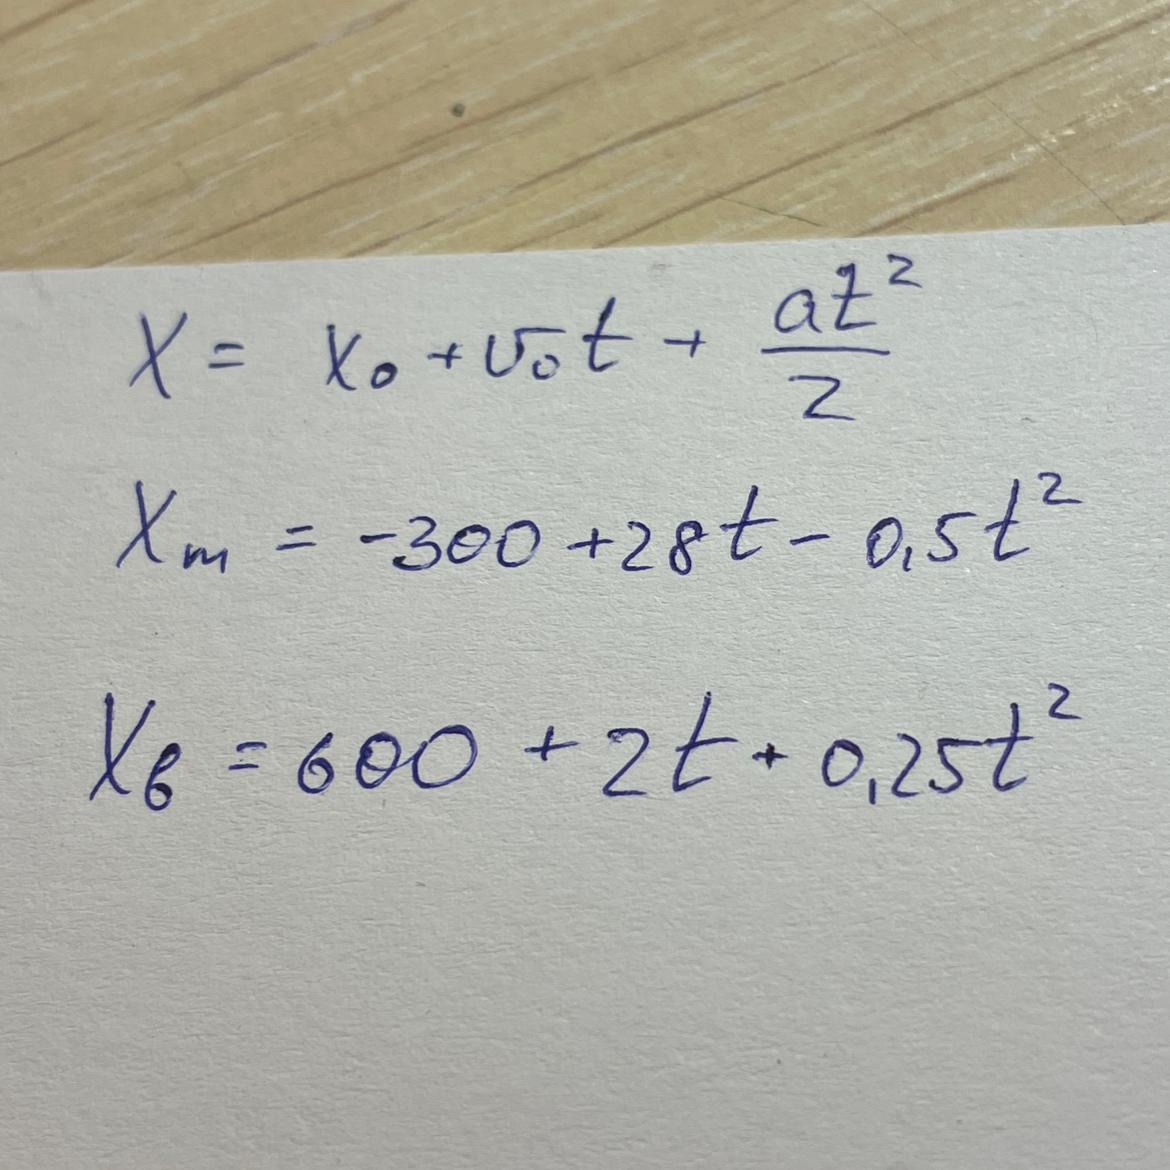 X = x₀ + v₀t + at²/2
Xm = -300 + 28t - 0,5t²
Xв = 600 + 2t + 0,25t²